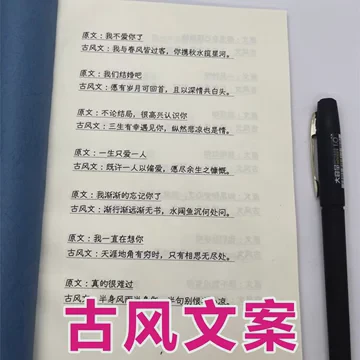 原文：我不爱你了
古风文：我与春风皆过客，你携秋水揽星河。
原文：我们结婚吧
古风文：愿有岁月可回首，且以深情共白头。
原文：不论结局，很高兴认识你
古风文：三生有幸遇见你，纵然悲凉也是情。
原文：一生只爱一人
古风文：既许一人以偏爱，愿尽余生之慷慨。
原文：我渐渐的忘记你了
古风文：渐行渐远渐无书，水阔鱼沉何处问。
原文：我一直在想你
古风文：天涯地角有穷时，只有相思无尽处。
原文：真的很难过
古风文：半身风雨半身伤，半句别恨半心凉。
古风文案